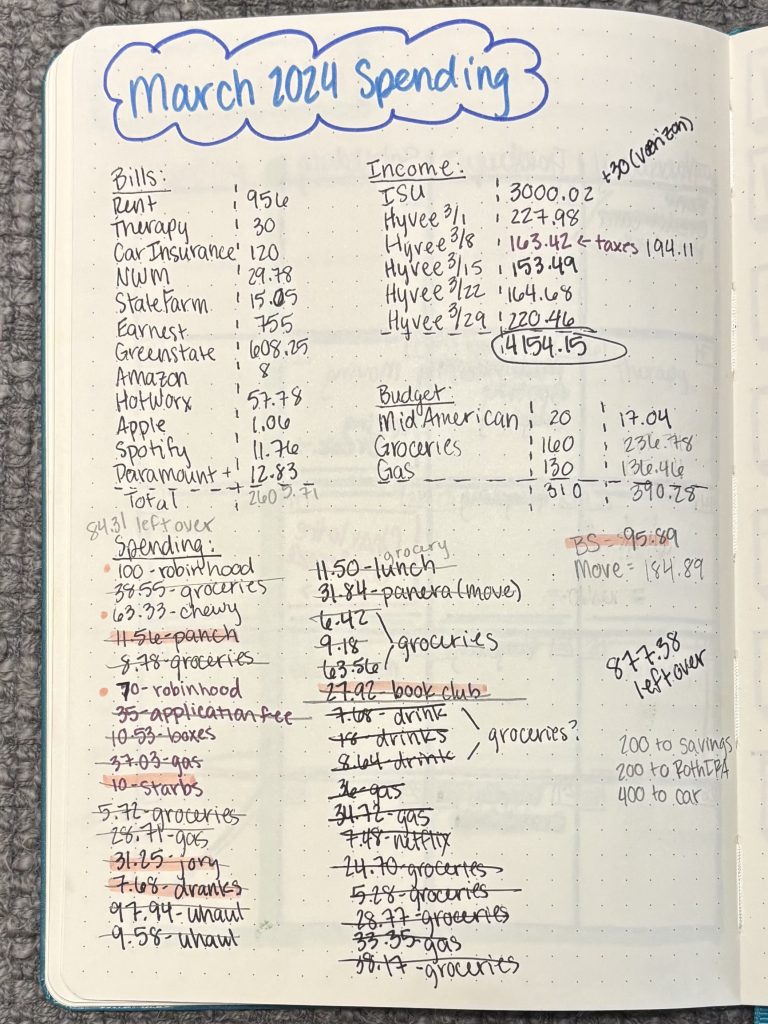 March 2024 Spending
Bills:
Rent 956
Therapy 30
Car Insurance 120
NWM 29.78
StateFarm 15.05
Earnest 755
Greenstate 608.25
Amazon 8
HotWorx 57.78
Apple 1.06
Spotify 11.76
Paramount + 12.83
Total 2605.71
84.31 left over
Income:
+30 (verizon)
ISU 3000.02
Hyvee 3/1 227.98
Hyvee 3/8 163.42 ← taxes 194.11
Hyvee 3/15 153.49
Hyvee 3/22 164.68
Hyvee 3/29 220.46
4154.15
Budget
MidAmerican 20 17.04
Groceries 160 236.78
Gas 130 136.46
310 390.28
Spending:
100-robinhood
38.55-groceries
63.33-chewy
11.56-panch
8.78-groceries
70-robinhood
35-application fee
10.53-boxes
37.03-gas
10-starbs
5.72-groceries
28.71-gas
31.25-jory
7.68-dranks
97.94-uhaul
9.58-uhaul
grocery
11.50-lunch
31.84-panera (move)
6.42
9.18
63.56
groceries
27.92-book club
7.68-drink
18-drinks
8.64-drink
groceries?
36-gas
34.72-gas
7.48-netflix
24.70-groceries
5.28-groceries
28.77-groceries
33.35-gas
38.17-groceries
BS = 95.89
Move = 184.89
877.38
left over
200 to savings
200 to RothIRA
400 to car